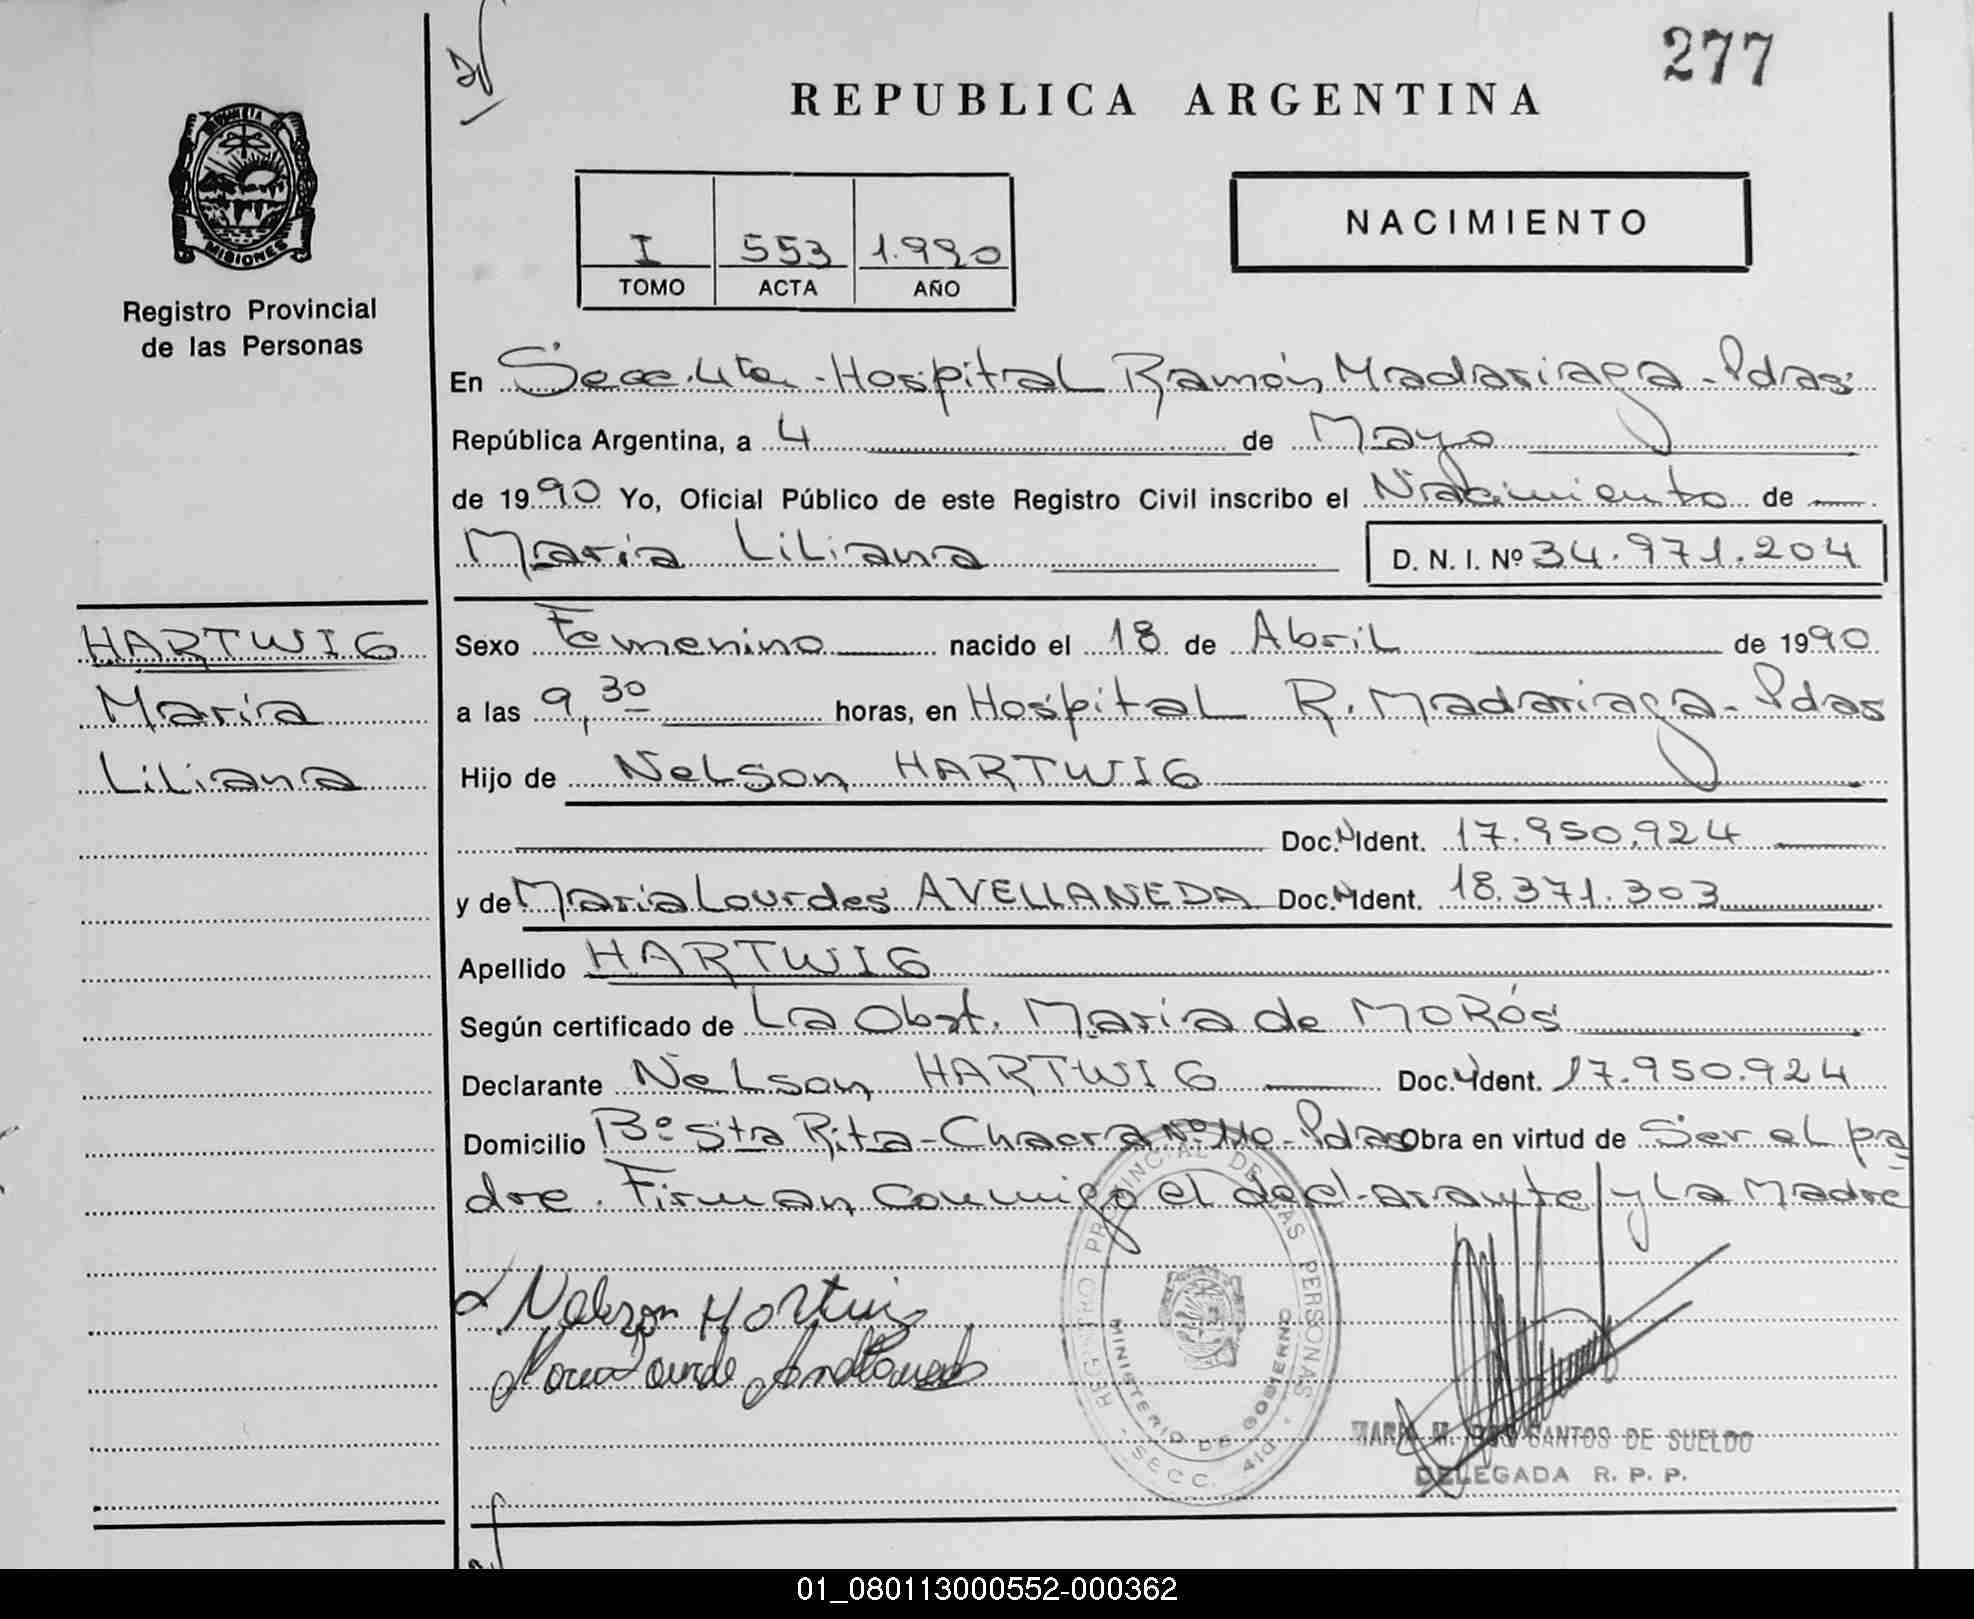 277
REPUBLICA ARGENTINA
PROVINCIA DE
MISIONES
Registro Provincial
de las Personas
I 553 1.990
TOMO ACTA AÑO
NACIMIENTO
En Secc. 4ta. - Hospital Ramón Madariaga - Pdas
República Argentina, a 4 de Mayo
de 1990 Yo, Oficial Público de este Registro Civil inscribo el Nacimiento de
María Liliana D. N. I. Nº 34.971.204
HARTWIG
María
Liliana
Sexo Femenino nacido el 18 de Abril de 1990
a las 9,30 horas, en Hospital R. Madariaga - Pdas
Hijo de Nelson HARTWIG
Doc. Ident. 17.950.924
y de María Lourdes AVELLANEDA Doc. Ident. 18.371.303
Apellido HARTWIG
Según certificado de La Obst. María de MORÓS
Declarante Nelson HARTWIG Doc. Ident. 17.950.924
Domicilio Bº Sta Rita - Chacra Nº 110 - Pdas Obra en virtud de Ser el pa
dre. Firman conmigo el declarante y La Madre
Nelson Hartwig
REGISTRO PROVINCIAL DE LAS PERSONAS
MINISTERIO DE GOBIERNO
SECC. 4ta
M. DOS SANTOS DE SUELDO
DELEGADA R. P. P.
01_080113000552-000362